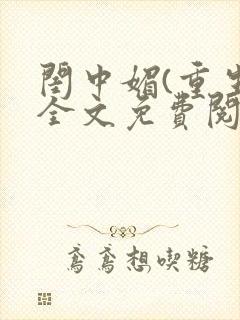 閨中媚(重生
全文免費閱
鸢鸢想喫糖